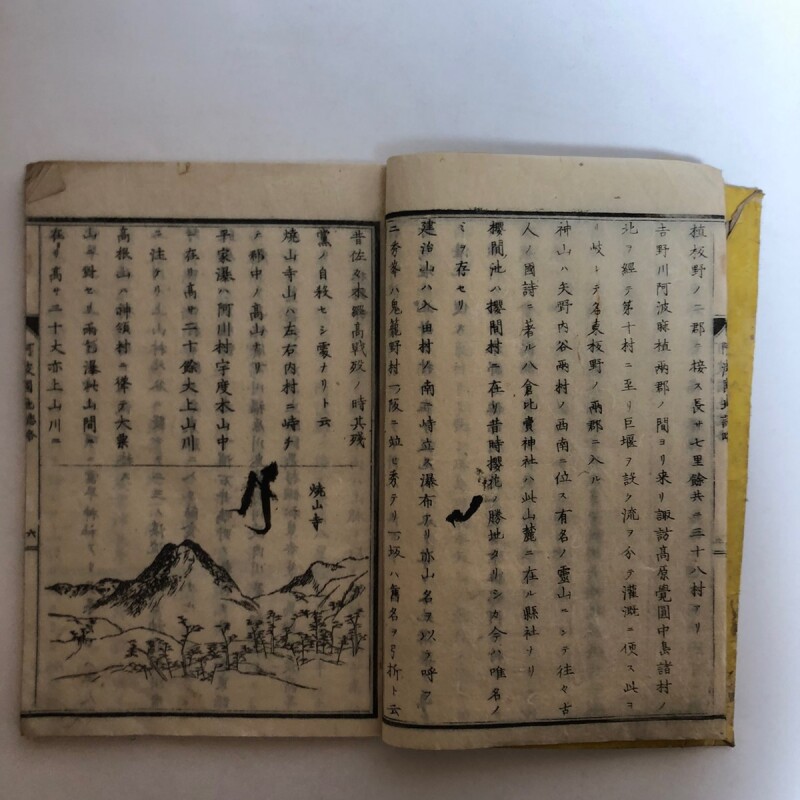 植板野ノ二郡ニ接ス長サ七里餘共ニ三十八村アリ
吉野川阿波麻植両郡ノ間ヨリ来リ諏訪高原覺圓中島諸村ノ
北ヲ經テ第十村ニ至リ巨堰ヲ設ケ流ヲ分テ灌漑ニ便ス此ヨ
リ岐シテ名東板野ノ両郡ニ入ル
神山ハ矢野内谷両村ノ西南ニ位ス有名ノ靈山ニシテ往々古
人ノ國詩ニ著ル八倉比賣神社ハ此山麓ニ在ル縣社ナリ
櫻間池ハ櫻間村ニ在リ昔時櫻花ノ勝地タリシカ今ハ唯名ノ
ミヲ存セリ
建治山ハ入田村ノ南ニ峙立ス瀑布アリ亦山名ヲ以テ呼フ
二秀峯ハ鬼籠野村一阪ニ竝ヒ秀テリ一坂ハ舊名ヲ弓折ト云
昔佐々木羅高戦歿ノ時其残
黨ノ自殺セシ處ナリト云
焼山寺山ハ左右内村ニ峙チ
テ郡中ノ高山ナリ
平家瀑ハ阿川村字度木山中
ニ在リ高サ二十餘丈上山川
ニ注ケリ
高根山ハ神領村ニ
山ト對セリ雨乞瀑其山間ニ
在リ高サ二十丈亦上山川ニ
焼山寺
阿波國地誌
六